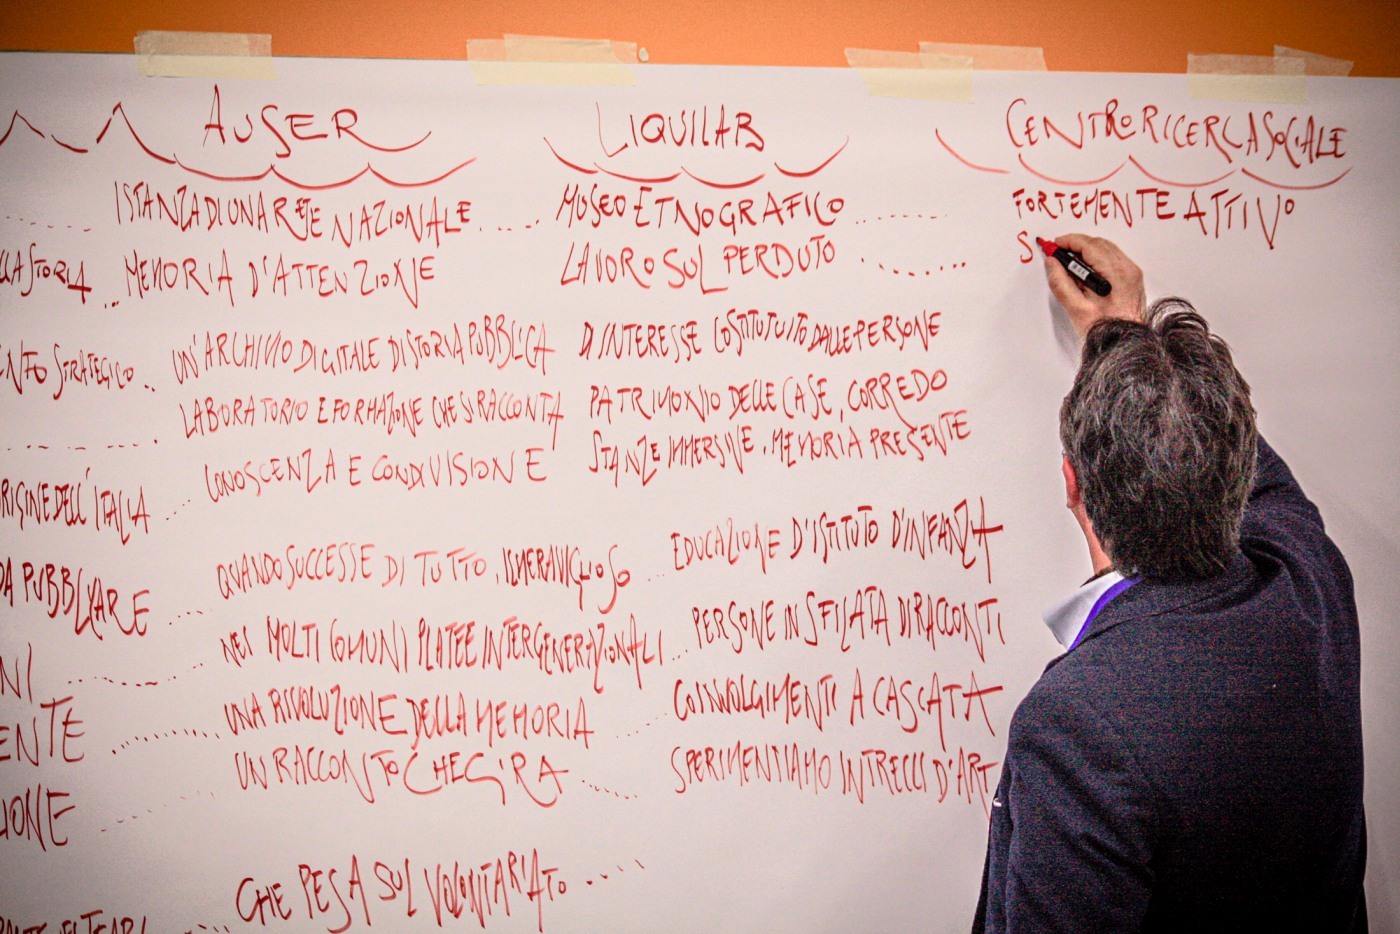 AUSER
ISTANZA DI UNA RETE NAZIONALE
MEMORIA D'ATTENZIONE
UN'ARCHIVIO DIGITALE DI STORIA PUBBLICA
LABORATORIO E FORMAZIONE CHE SI RACCONTA
CONOSCENZA E CONDIVISIONE
QUANDO SUCCESSE DI TUTTO, IL MERAVIGLIOSO
NEI MOLTI COMUNI PLATEE INTERGENERAZIONALI
UNA RIVOLUZIONE DELLA MEMORIA
UN RACCONTO CHE GIRA
CHE PESA SUL VOLONTARIATO
LIQUILAB
MUSEO ETNOGRAFICO
LAVORO SUL PERDUTO
D'INTERESSE COSTITUITO DALLE PERSONE
PATRIMONIO DELLE CASE, CORREDO
STANZE IMMERSIVE. MEMORIA PRESENTE
EDUCAZIONE D'ISTITUTO D'INFANZA
PERSONE IN SFILATA DI RACCONTI
COINVOLGIMENTI A CASCATA
SPERIMENTIAMO INTRECCI D'ART
CENTRO RICERCA SOCIALE
FORTEMENTE ATTIVO
S
LLA STORIA
ENTO STRATEGICO
ORIGINE DELL'ITALIA
DA PUBBLICARE
NI
ENTE
IONE